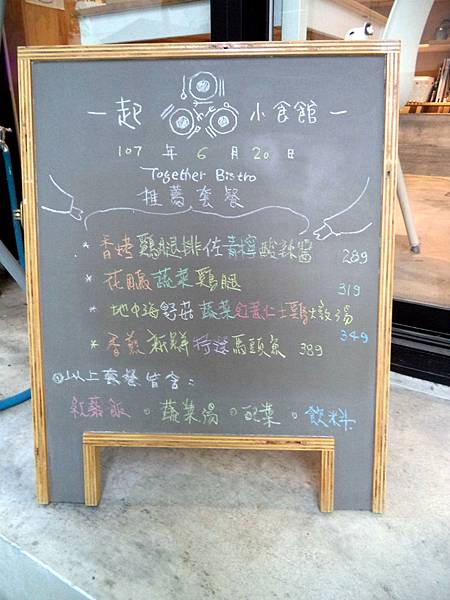 一起 小食館
107 年 6 月 20 日
Together Bistro
推薦套餐
* 香烤雞腿排佐青檸酸辣醬 289
* 花雕蔬菜雞腿 319
* 地中海野菇蔬菜紅薏仁土雞燉湯 349
* 香煎新鮮特選馬頭魚 389
以上套餐皆含:
紅藜飯。蔬菜湯。配菜。飲料